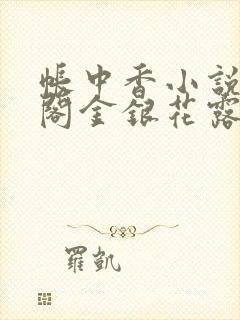 帳中香小說
閣金銀花露
羅凱